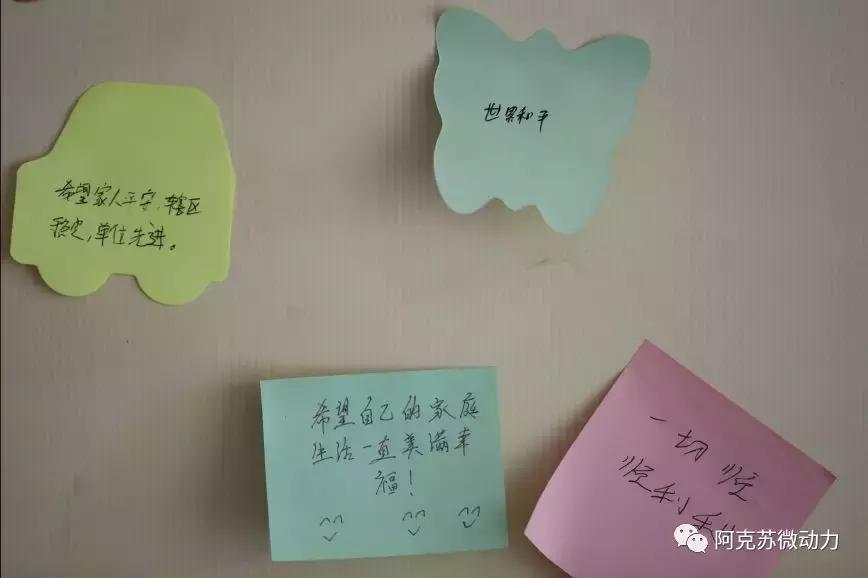 世界和平
希望家人平安，辖区
稳定，单位先进。
希望自己的家庭
生活一直美满幸
福！
一切
利利
阿克苏微动力